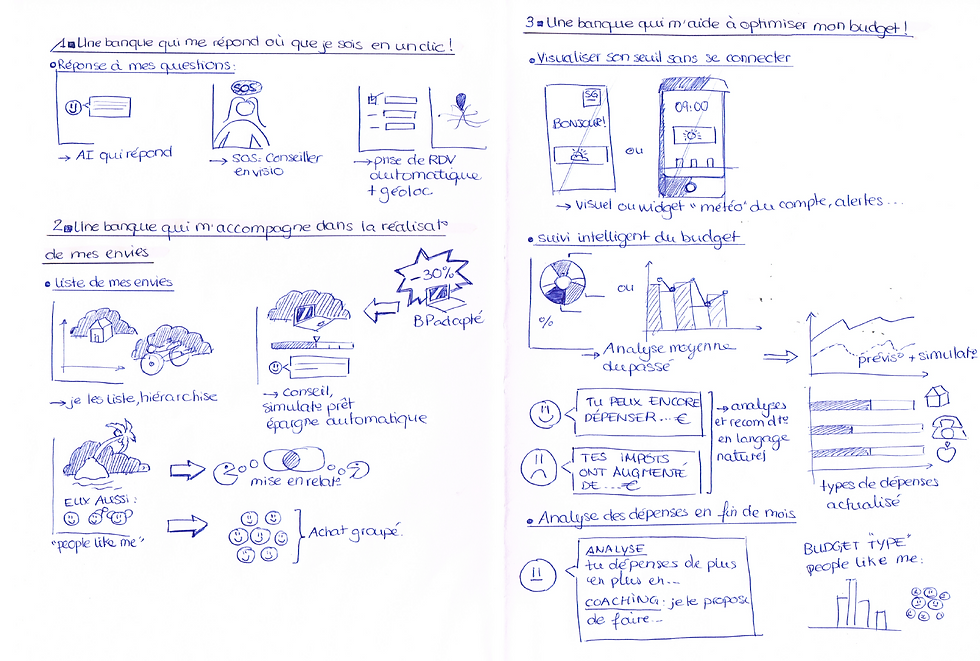 1. Une banque qui me répond où que je sois en un clic !
• Réponse à mes questions :
SOS
→ AI qui répond
→ SOS : Conseiller
en visio
→ prise de RDV
automatique
+ géoloc
2. Une banque qui m'accompagne dans la réalisat°
de mes envies
• Liste de mes envies
-30%
BP adapté
→ je les liste, hiérarchise
→ conseil,
simulat° prêt
épargne automatique
EUX AUSSI :
"people like me"
mise en relat°
Achat groupé.
3. Une banque qui m'aide à optimiser mon budget !
• Visualiser son seuil sans se connecter
SG
BONJOUR !
ou
09:00
→ visuel ou widget "météo" du compte, alertes...
• suivi intelligent du budget
%
ou
→ Analyse moyenne
du passé
prévis° + simulat°
TU PEUX ENCORE
DÉPENSER...€
TES IMPÔTS
ONT AUGMENTÉ
DE ...€
→ analyses
et recomdt°
en langage
naturel
types de dépenses
actualisé
• Analyse des dépenses en fin de mois
ANALYSE
tu dépenses de plus
en plus en...
COACHING : je te propose
de faire...
BUDGET "TYPE"
people like me :